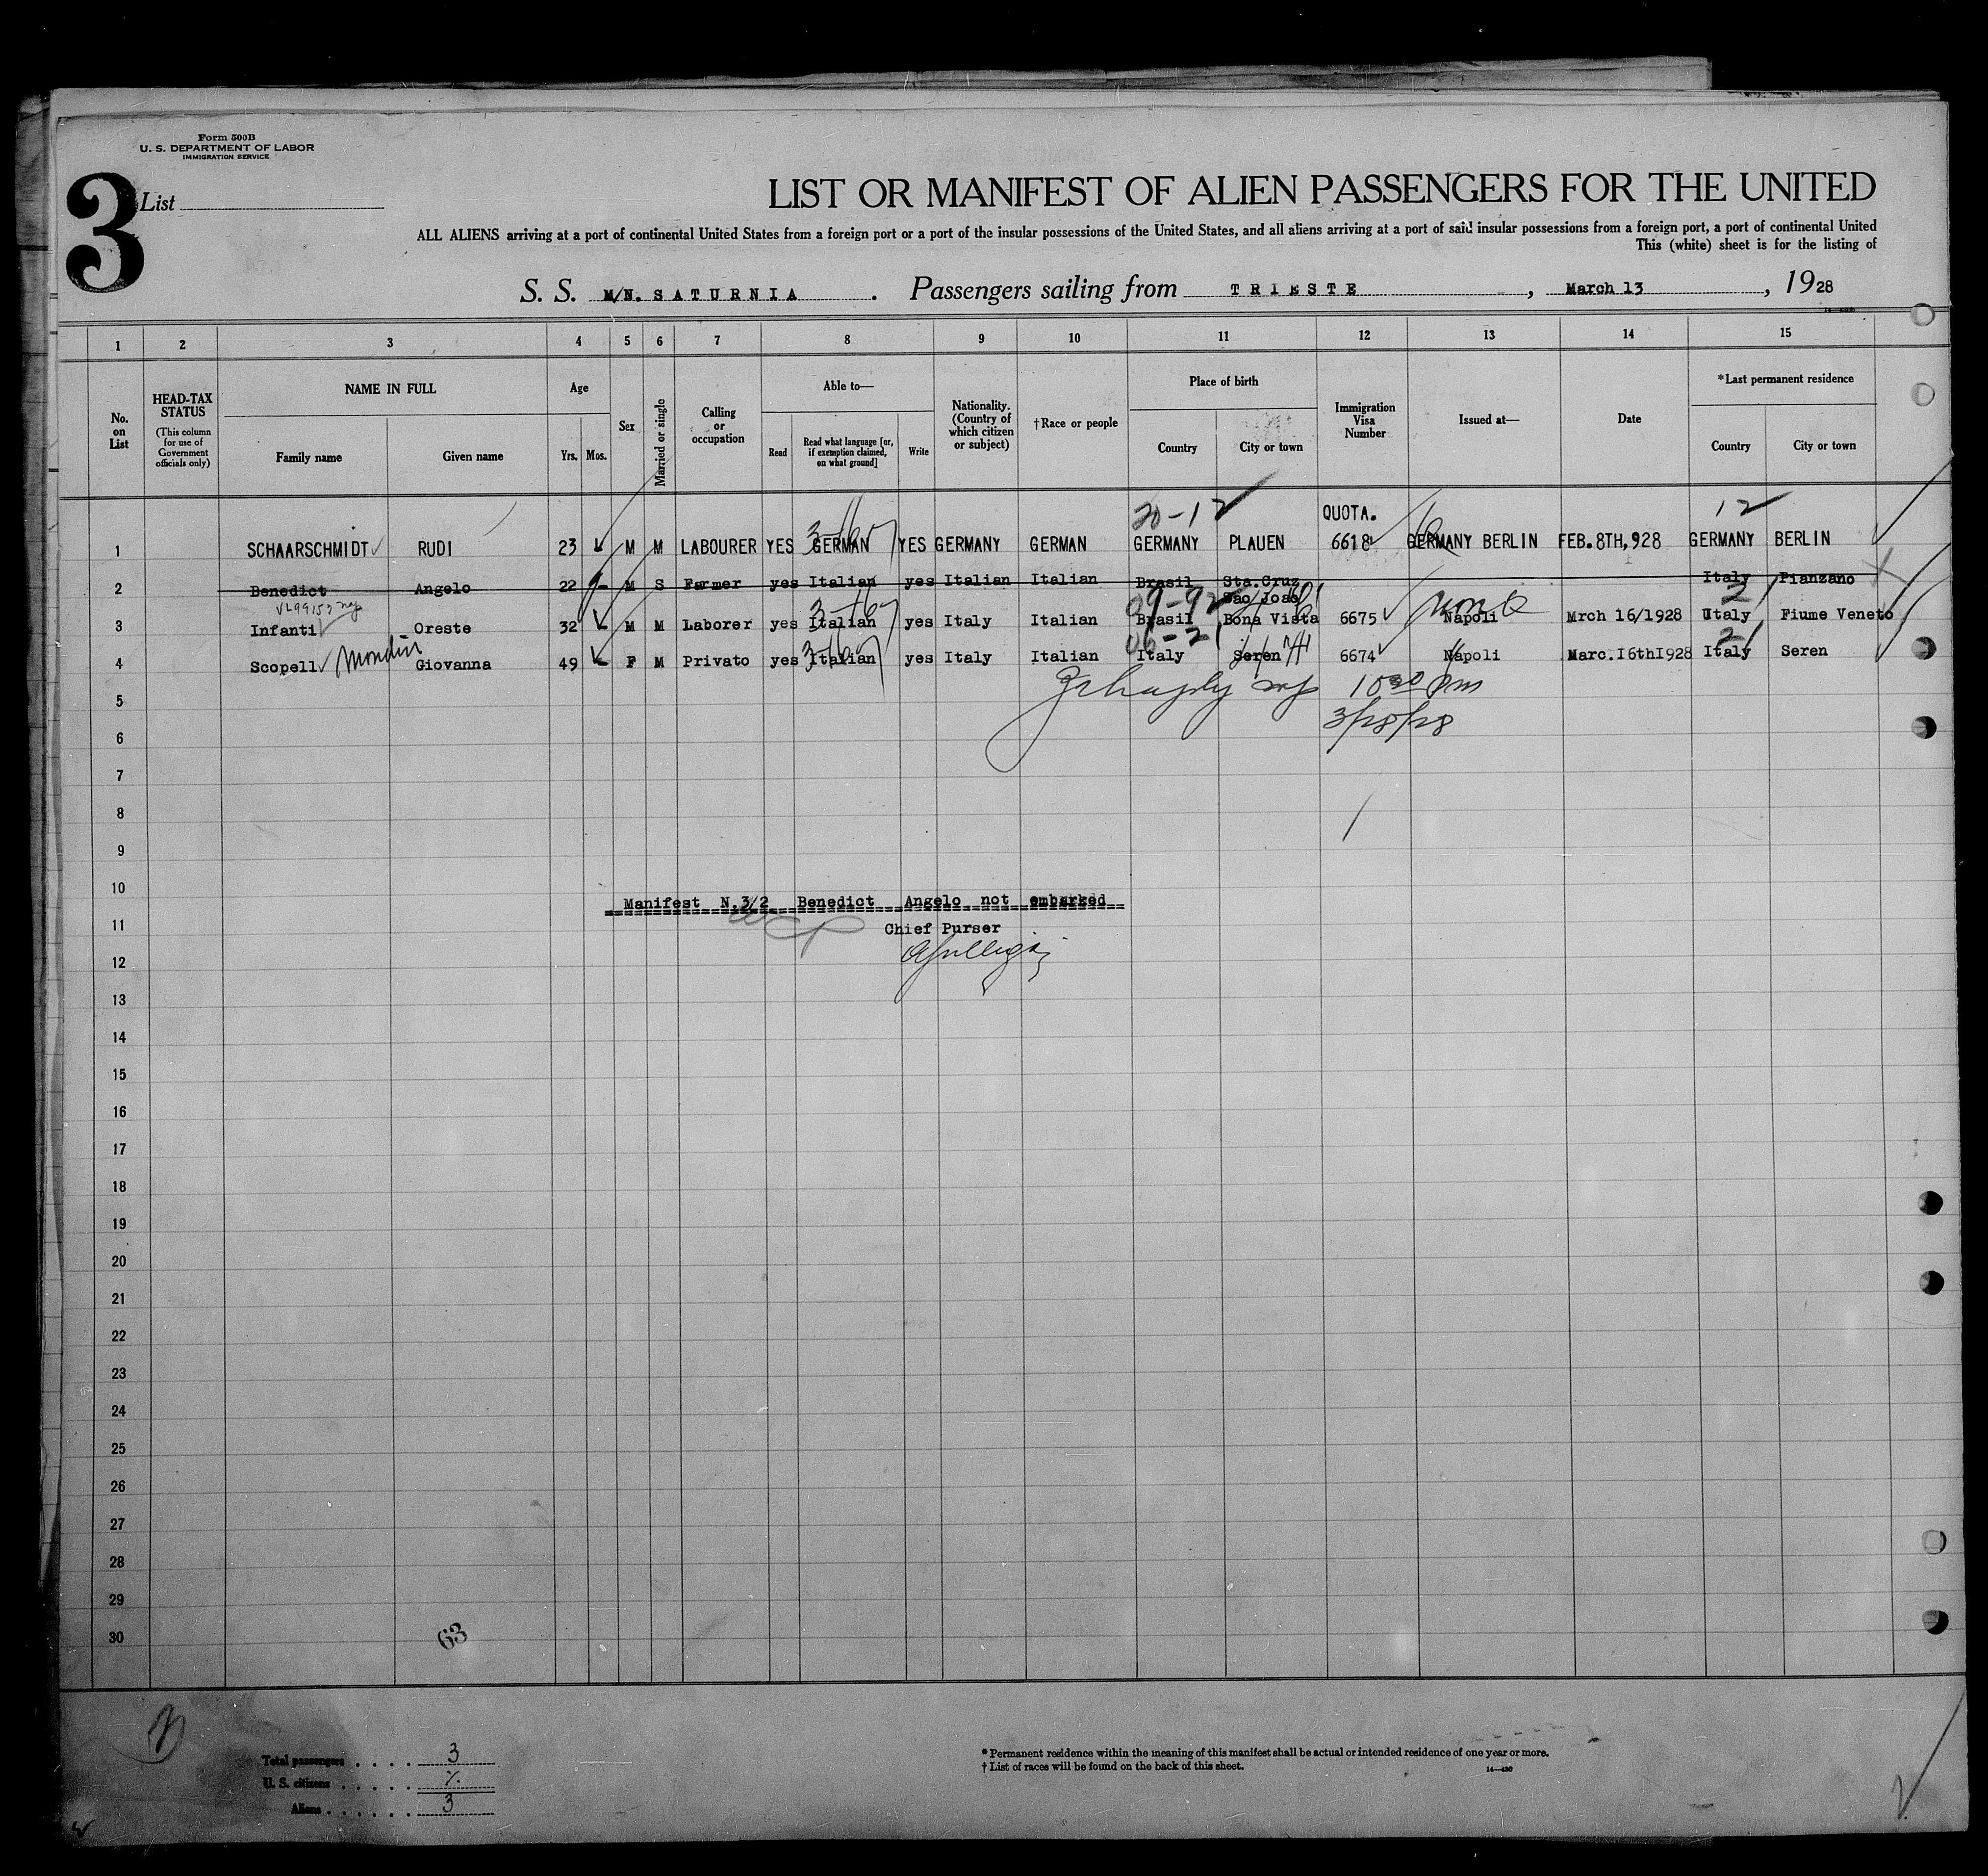 Form 500B
U. S. DEPARTMENT OF LABOR
IMMIGRATION SERVICE
3
List
LIST OR MANIFEST OF ALIEN PASSENGERS FOR THE UNITED
ALL ALIENS arriving at a port of continental United States from a foreign port or a port of the insular possessions of the United States, and all aliens arriving at a port of said insular possessions from a foreign port, a port of continental United
This (white) sheet is for the listing of
S. S. M/N. SATURNIA . Passengers sailing from TRIESTE , March 13 , 1928
1 2 3 4 5 6 7 8 9 10 11 12 13 14 15
No. on List
HEAD-TAX STATUS (This column for use of Government officials only)
NAME IN FULL
Family name Given name
Age
Yrs. Mos.
Sex
Married or single
Calling or occupation
Able to—
Read Read what language [or, if exemption claimed, on what ground] Write
Nationality. (Country of which citizen or subject)
†Race or people
Place of birth
Country City or town
Immigration Visa Number
Issued at—
Date
*Last permanent residence
Country City or town
20-12 QUOTA. 12
1 SCHAARSCHMIDT RUDI 23 M M LABOURER YES GERMAN YES GERMANY GERMAN GERMANY PLAUEN 6618 GERMANY BERLIN FEB.8TH,928 GERMANY BERLIN
2 Benedict Angelo 22 - M S Farmer yes Italian yes Italian Italian Brasil Sta.Cruz Italy Pianzano
Sao Joao
3 Infanti Oreste 32 - M M Laborer yes Italian yes Italy Italian Brasil Bona Vista 6675 Napoli Mrch 16/1928 Italy Fiume Veneto
4 Scopell Mondin Giovanna 49 F M Privato yes Italian yes Italy Italian Italy Seren 6674 Napoli Marc.I6thI928 Italy Seren
10 30 pm
5
3/28/28
6
7
8
9
10
Manifest N.3/2 Benedict Angelo not embarked
11
Chief Purser
12
13
14
15
16
17
18
19
20
21
22
23
24
25
26
27
28
29
30
63
Total passengers . . . . 3
U. S. citizens . . . . .
Aliens . . . . . . 3
* Permanent residence within the meaning of this manifest shall be actual or intended residence of one year or more.
† List of races will be found on the back of this sheet.
14—430